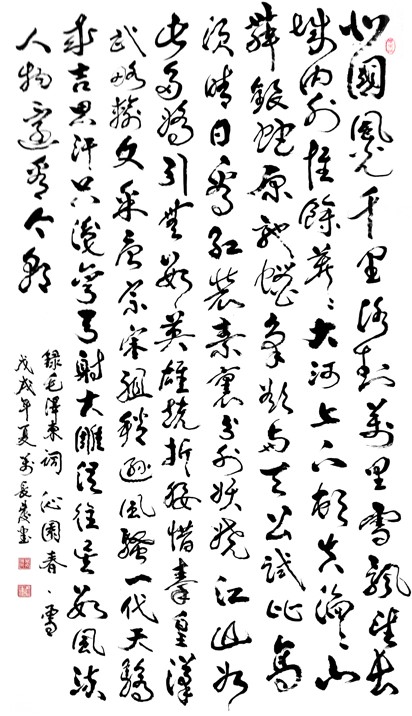 北國風光千里冰封萬里雪飄望長
城內外惟餘莽〻大河上下頓失滔〻山
舞銀蛇原馳蠟象欲與天公試比高
須晴日看紅裝素裹分外妖嬈江山如
此多嬌引無數英雄競折腰惜秦皇漢
武略輸文采唐宗宋祖稍遜風騷一代天驕
成吉思汗只識彎弓射大雕俱往矣數風流
人物還看今朝
錄毛澤東詞沁園春·雪
戊戌年夏萬長書